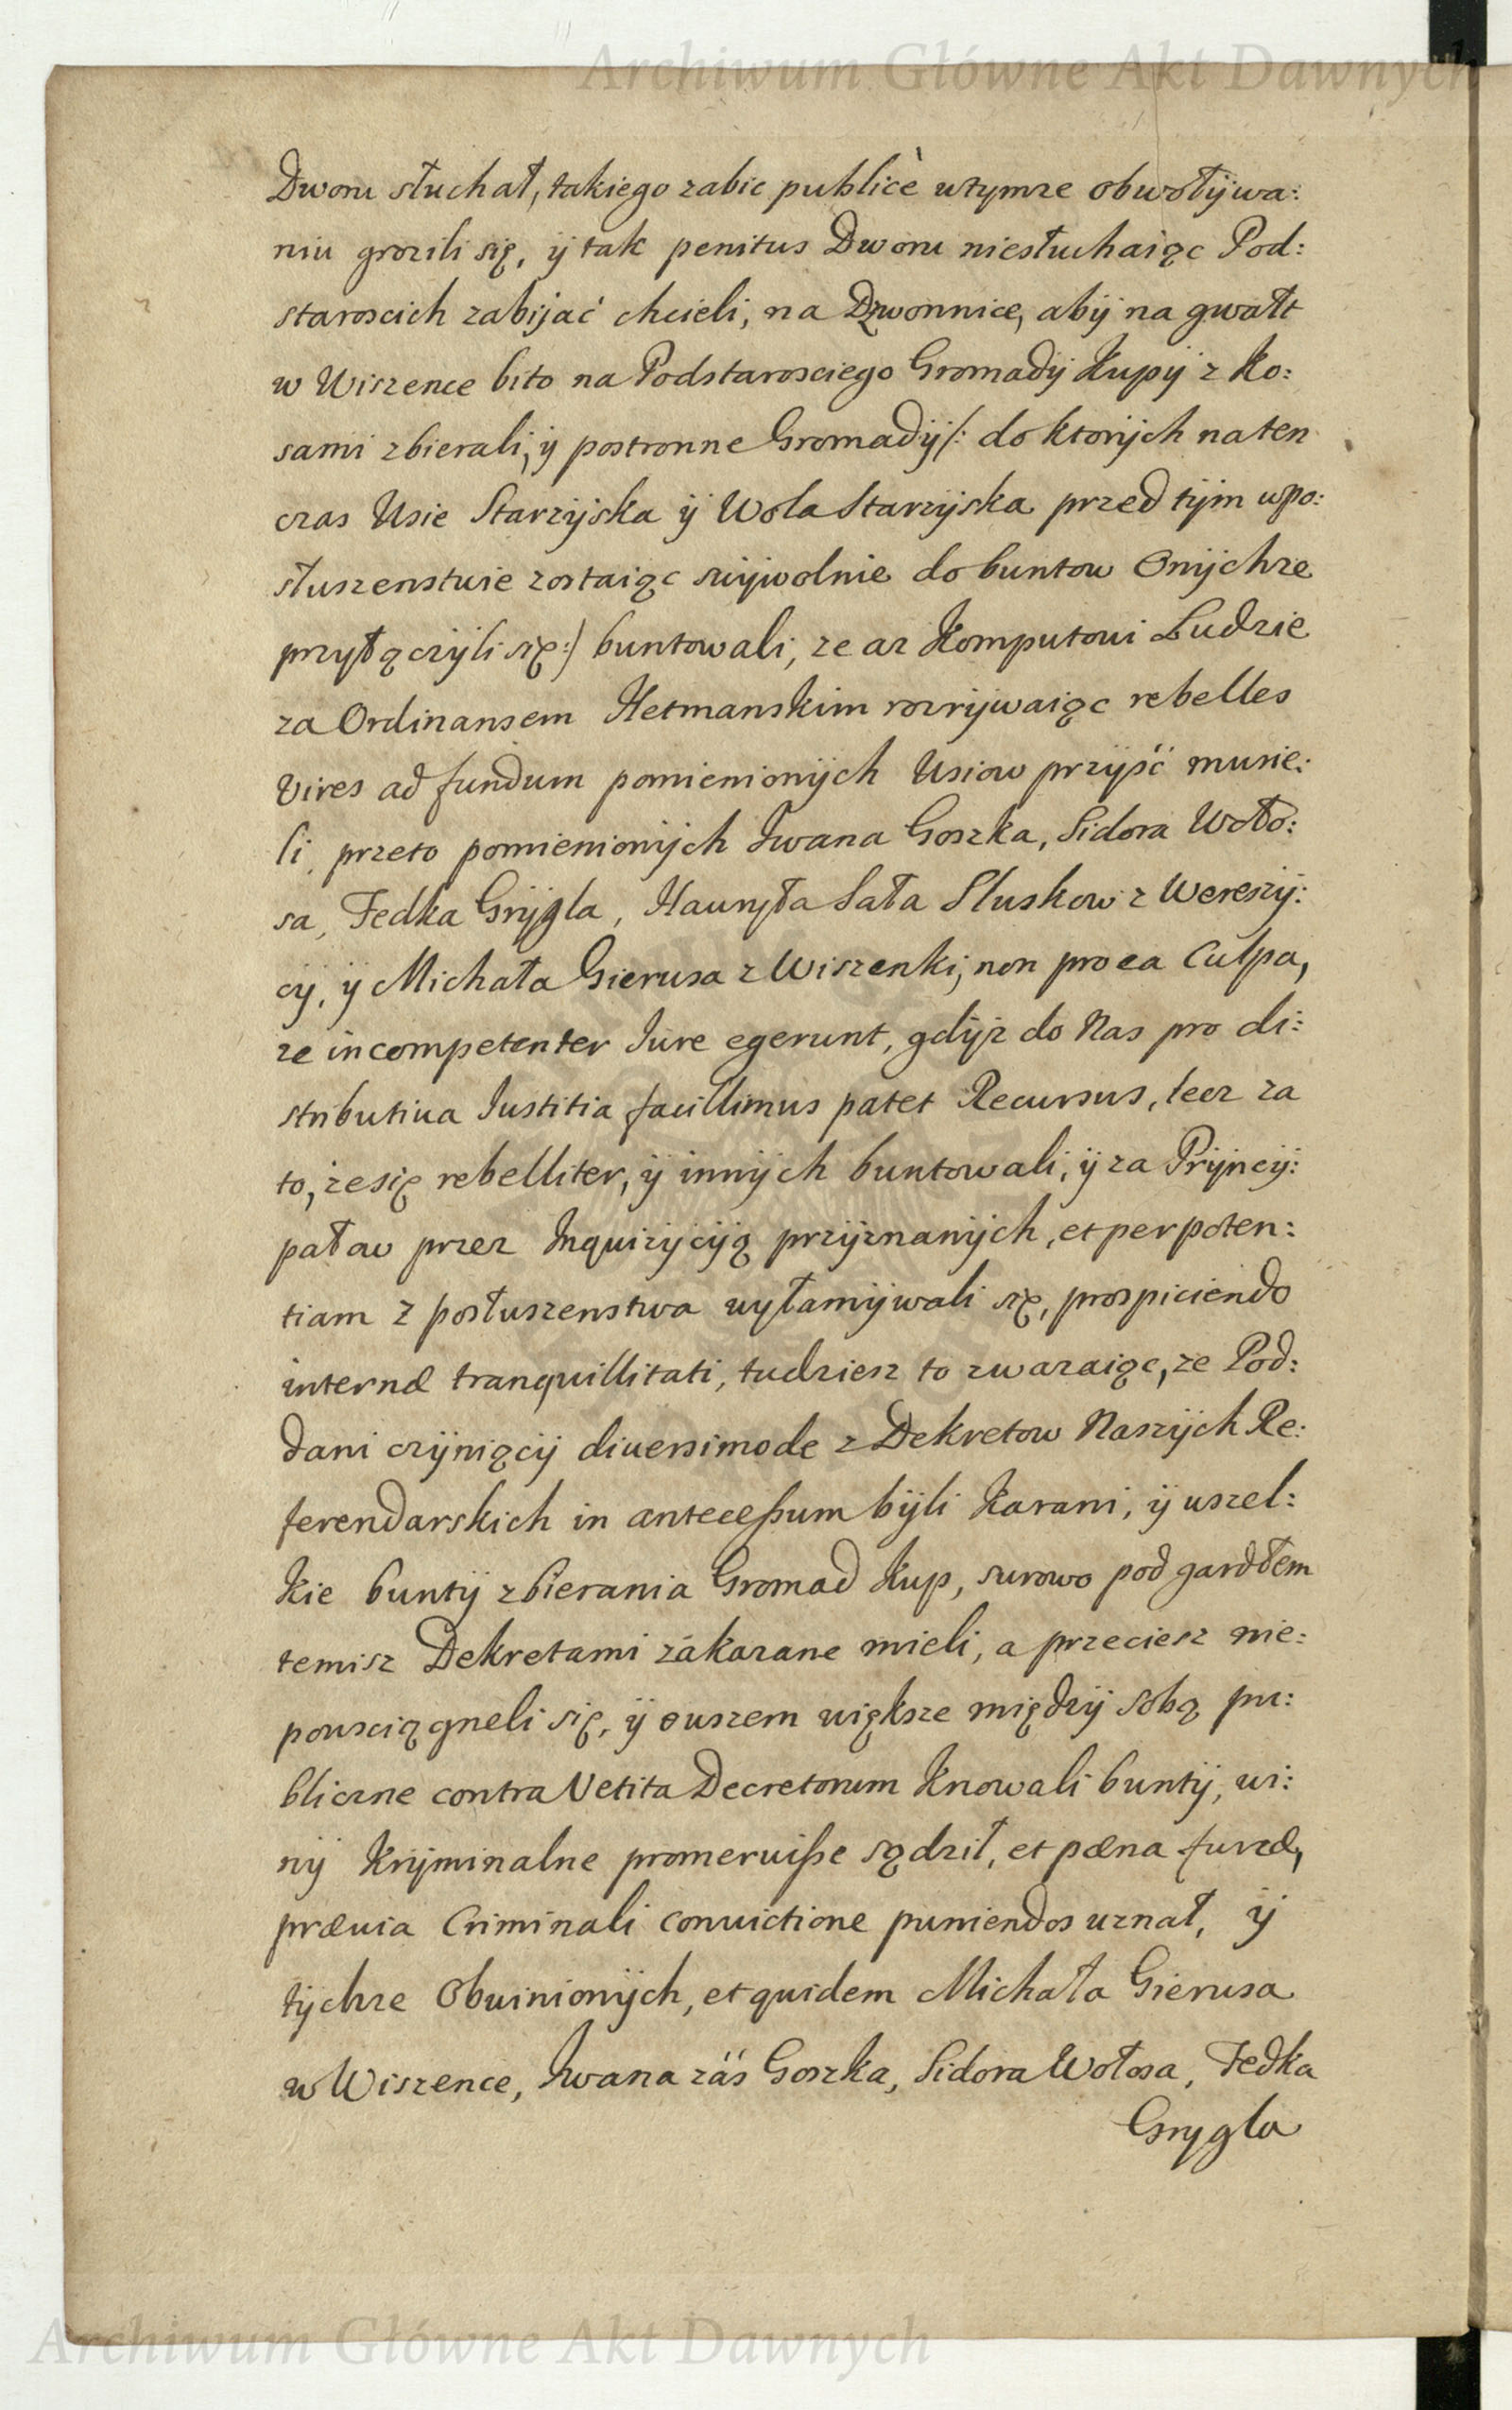 Archiwum Główne Akt Dawnych
Dworu słuchał, takiego zabic publicè wtymze obwołÿwa:
niu grozili się, ÿ tak penitus Dworu niesłuchaiąc Pod:
staroscich zabijać chcieli, na Dzwonnice, abÿ na gwałt
w Wiszence bito na Podstarosciego Gromadÿ Kupÿ z Ko:
sami zbierali, ÿ postronne Gromadÿ /: do ktorÿch na ten
czas Wsie Starzÿska ÿ Wola Starzÿska przed tÿm wpo:
słuszenstwie zostaiąc swÿwolnie do buntow Onÿchze
przyłączÿli się :/ buntowali, ze az Komputowi Ludzie
za Ordinansem Hetmanskim rozrÿwaiąc rebelles
vires ad fundum pomienionÿch Wsiow przÿść musie:
li, przeto pomienionÿch Jwana Goszka, Sidora Woło:
sa, Fedka Grÿgla, Hawryła Sała Sluskow z Wereszÿ:
cy, ÿ Michała Gierusa z Wiszenki, non pro ea Culpa,
ze incompetenter Jure egerunt, gdÿz do Nas pro di:
stributiva Justitia facillimus patet Recursus, lecz za
to, ze się rebelliter, ÿ innÿch buntowali, ÿ za Prÿncÿ:
pałow przez Inquizÿcÿą przÿznanÿch, et per poten:
tiam z posłuszenstwa wyłamÿwali się, prospiciendo
internæ tranquillitati, tudziesz to zwazaiąc, ze Pod:
dani czÿniącÿ diversimode z Dekretow Naszÿch Re:
ferendarskich in antecessum bÿli Karani, ÿ wszel:
Kie buntÿ zbierania Gromad Kup, surowo pod gardłem
temisz Dekretami zákazane mieli, a przeciesz nie:
powsciągneli się, ÿ owszem większe międzÿ sobą pu:
bliczne contra Vetita Decretorum Knowali buntÿ, wi:
nÿ Krÿminalne promeruisse sądził, et pæna furcæ,
prævia Criminali convictione puniendos uznał, ÿ
tÿchze Obwinionÿch, et quidem Michała Gierusa
w Wiszence, Jwana záś Goszka, Sidora Wołosa, Fedka
Grygla
Archiwum Główne Akt Dawnych